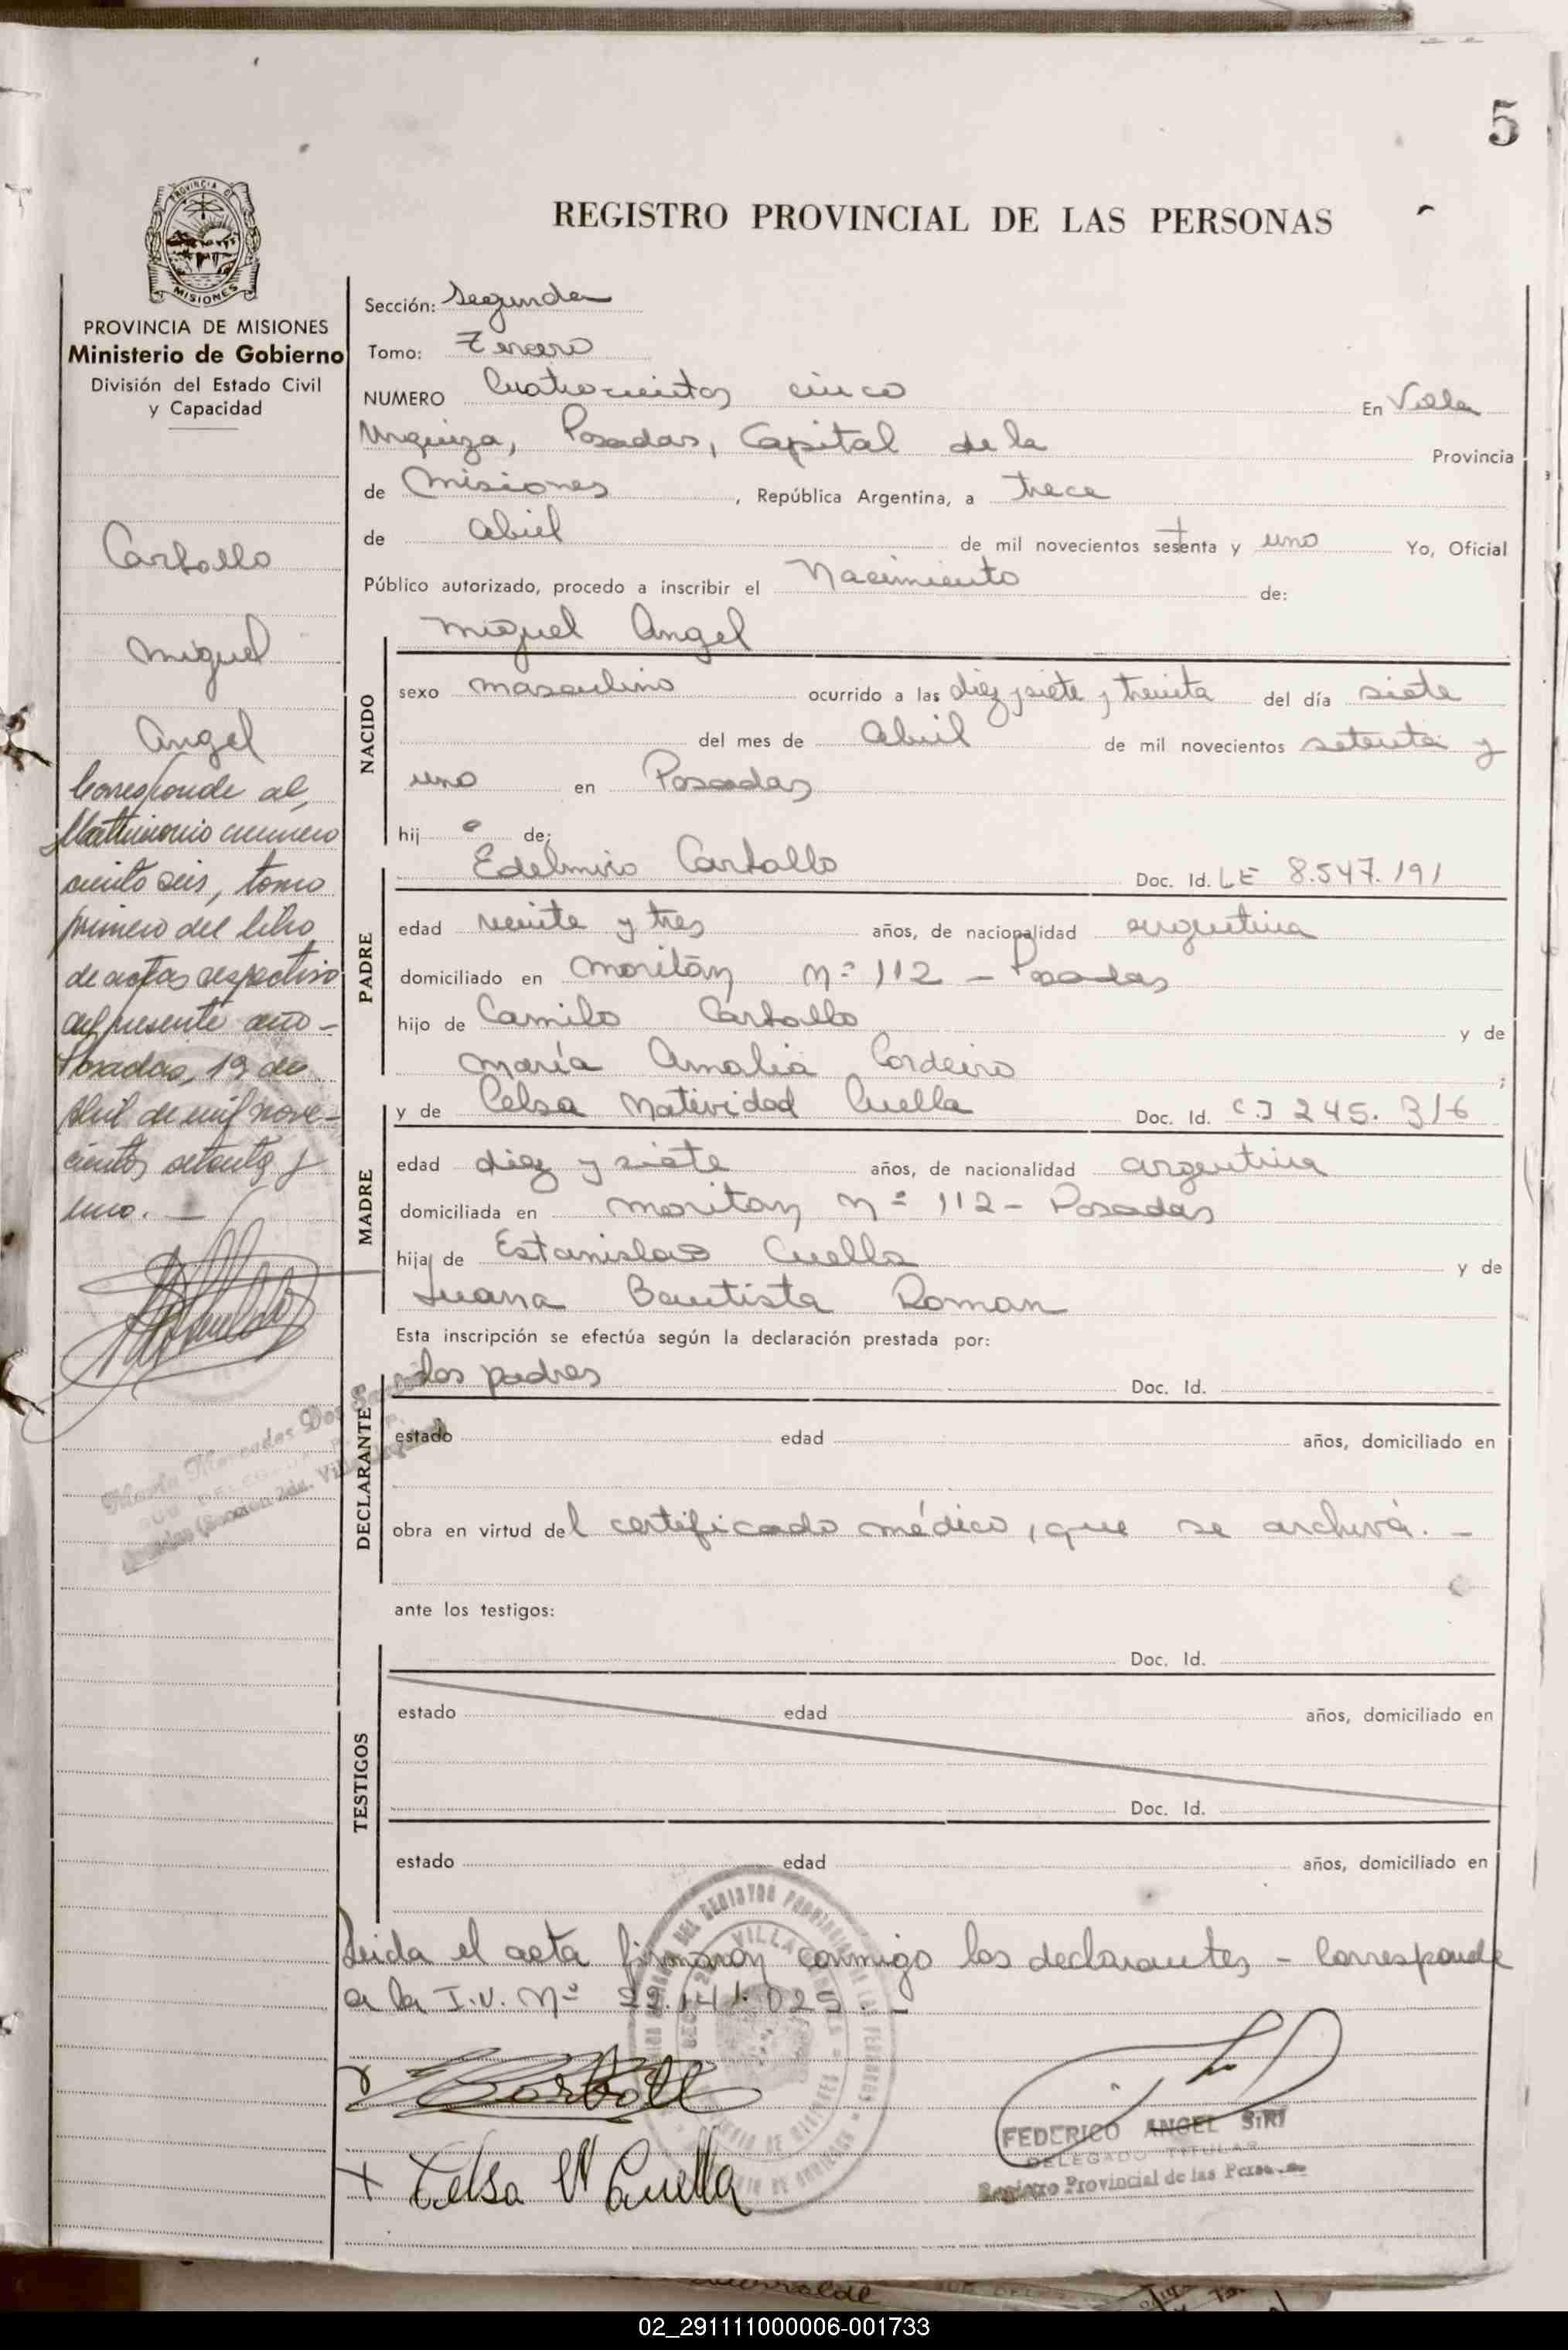 5
REGISTRO PROVINCIAL DE LAS PERSONAS
PROVINCIA DE MISIONES
Ministerio de Gobierno
División del Estado Civil
y Capacidad
Carballo
Miguel
Angel
Corresponde al
Matrimonio número
ciento seis, tomo
primero del libro
de actas respectivo
del presente año -
Posadas, 19 de
Abril de mil nove-
cientos setenta y
uno. -
Sección: Segunda
Tomo: Tercero
NUMERO Cuatrocientos cinco En Villa
Urquiza, Posadas, Capital de la Provincia
de Misiones, República Argentina, a trece
de abril de mil novecientos setenta y uno Yo, Oficial
Público autorizado, procedo a inscribir el Nacimiento de:
Miguel Angel
NACIDO
sexo masculino ocurrido a las diez y siete y treinta del día siete
del mes de abril de mil novecientos setenta y
uno en Posadas
hijo de:
PADRE
Edelmiro Carballo Doc. Id. LE 8.547.191
edad veinte y tres años, de nacionalidad argentina
domiciliado en Moritán Nº 112 - Posadas
hijo de Camilo Carballo y de
María Amalia Cordeiro ;
MADRE
y de Celsa Natividad Cuella Doc. Id. C.I 245.316
edad diez y siete años, de nacionalidad argentina
domiciliada en Moritan Nº 112 - Posadas
hija de Estanislao Cuella y de
Juana Bautista Roman
Esta inscripción se efectúa según la declaración prestada por:
DECLARANTE
los padres Doc. Id.
estado edad años, domiciliado en
obra en virtud del certificado médico, que se archiva. -
ante los testigos:
TESTIGOS
Doc. Id.
estado edad años, domiciliado en
Doc. Id.
estado edad años, domiciliado en
Leida el acta firmaron conmigo los declarantes - Corresponde
a la I.U. Nº 22.141.025. -
Celsa N Cuella
FEDERICO ANGEL SIRI
DELEGADO TITULAR
Registro Provincial de las Personas
02_291111000006-001733